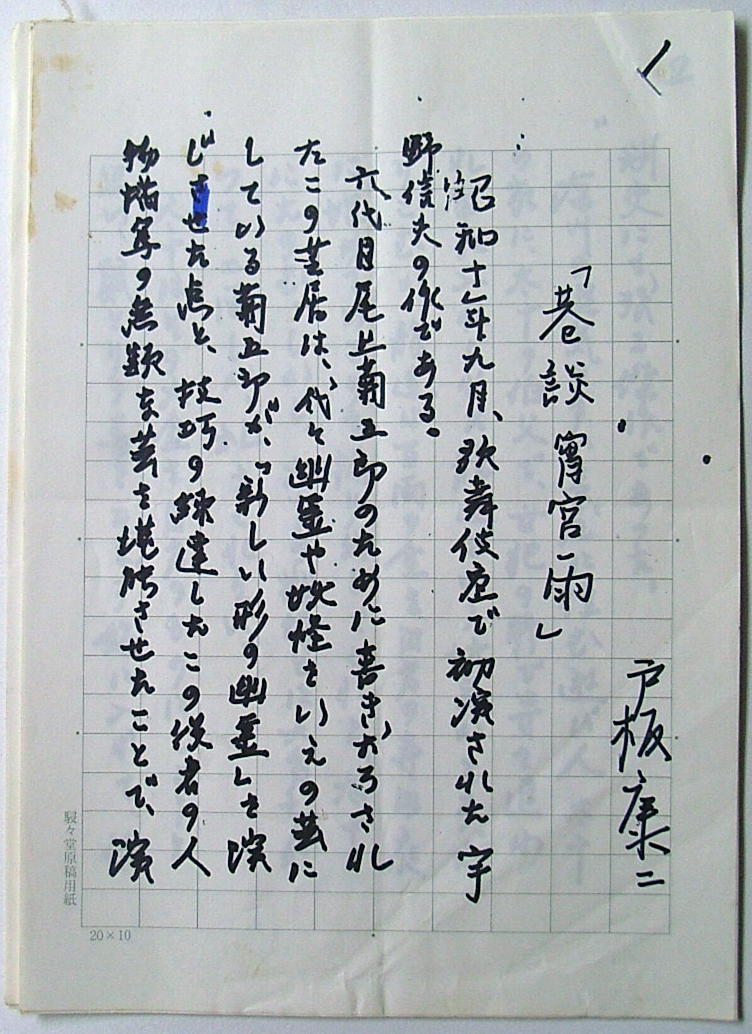 戸板康二
「巷談宵宮雨」
昭和十年九月、歌舞伎座で初演された宇
野信夫の作である。
六代目尾上菊五郎のために書きおろされ
たこの芝居は、代々幽霊や妖怪をいえの芸に
している菊五郎が、新しい形の幽霊を演
じさせた点と、技巧の練達したこの役者の人
物描写の無類な芸を堪能させたことで、演
駸々堂原稿用紙
20×10